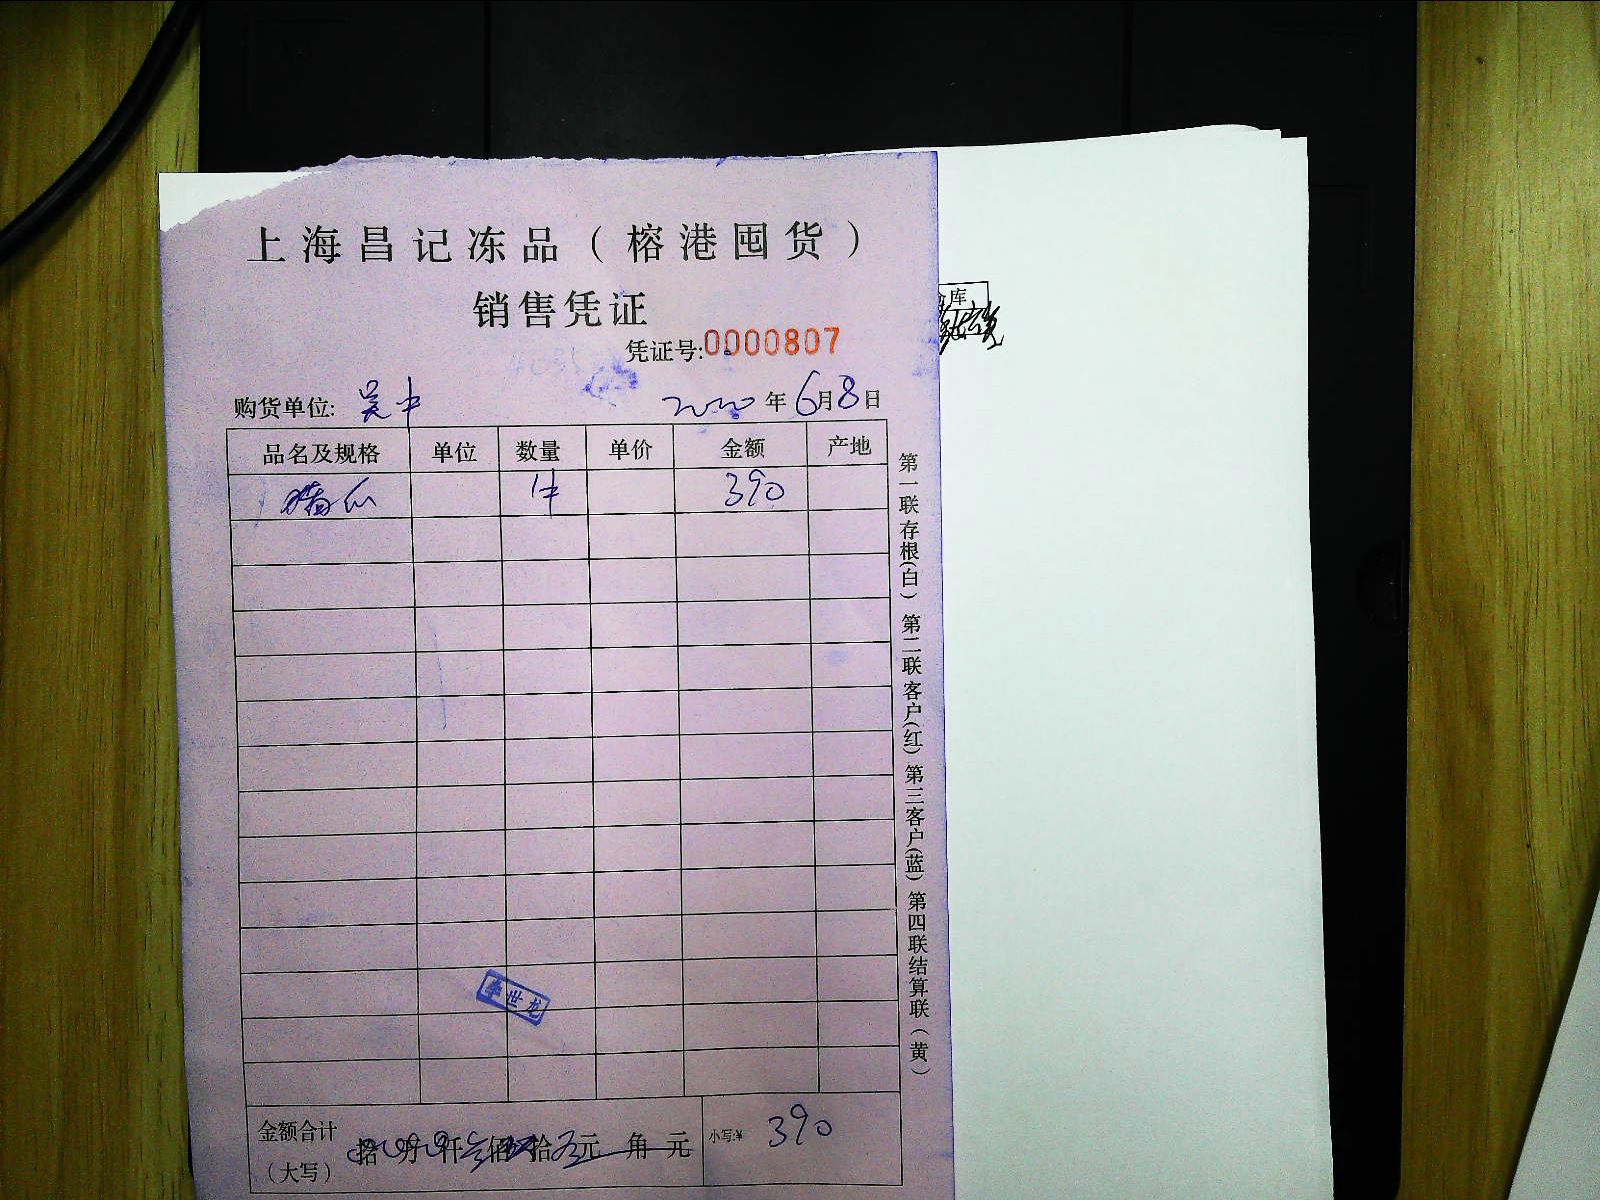 上海昌记冻品（榕港囤货）
销售凭证
凭证号:0000807
购货单位: 吴中 2020年6月8日
品名及规格 单位 数量 单价 金额 产地
猪爪 1件 390
李世龙
金额合计（大写） 拾 万 仟 佰 拾 元 角 元 小写:¥ 390
第一联存根(白) 第二联客户(红) 第三客户(蓝) 第四联结算联(黄)
库